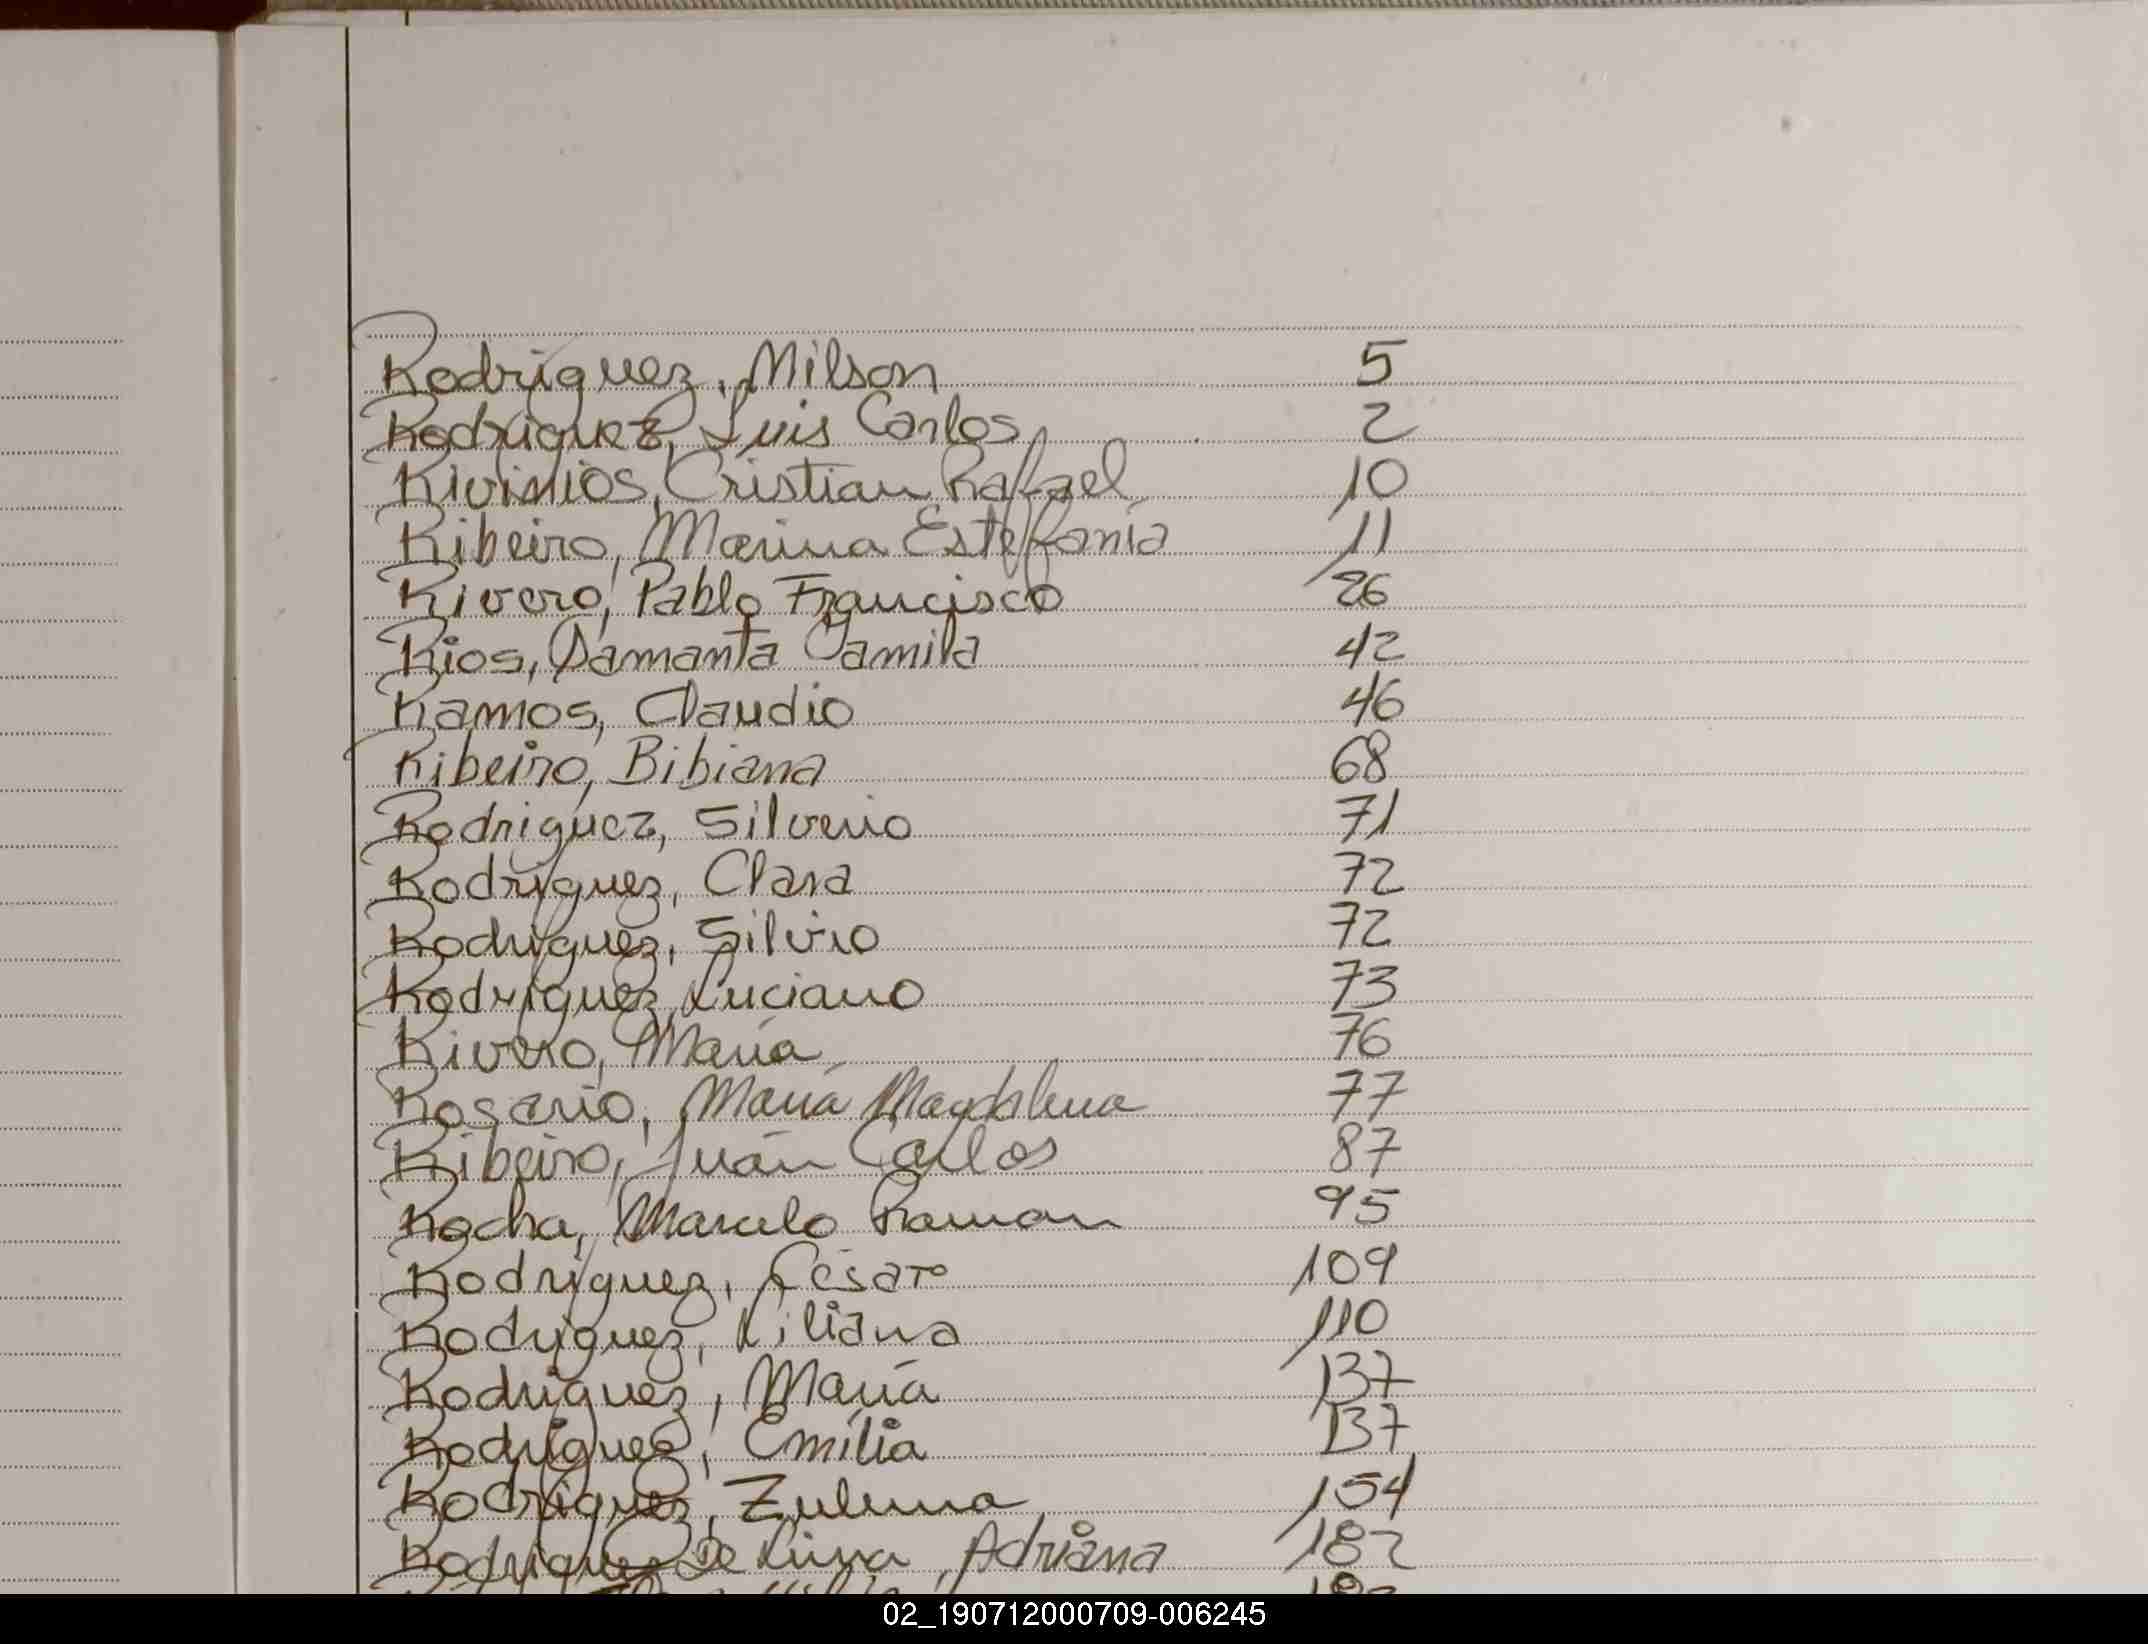 Rodriguez, Milson 5
Rodriguez, Luis Carlos 2
Cristian Rafael 10
Ribeiro, Marina Estefanía 11
Rivero, Pablo Francisco 26
Rios, Samanta Yamila 42
Ramos, Claudio 46
Ribeiro, Bibiana 68
Rodriguez, Silverio 71
Rodriguez, Clara 72
Rodriguez, Silvio 72
Rodriguez, Luciano 73
Rivero, María 76
Rosario, María Magdalena 77
Ribeiro, Juán Carlos 87
Rocha, Marcelo Ramon 95
Rodriguez, Cesar 109
Rodriguez, Liliana 110
Rodriguez, María 137
Rodriguez, Emilia 137
Rodriguez, Zulema 154
Adriana 182
02_190712000709-006245